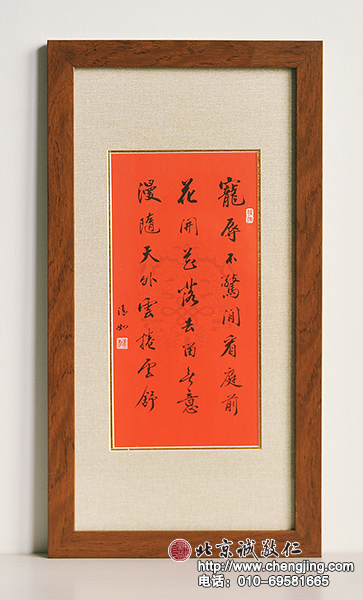 寵辱不驚閒看庭前
花開花落去留無意
漫隨天外雲捲雲舒
清如
北京誠敬仁
http://www.chengjing.com
电话：010-69581665